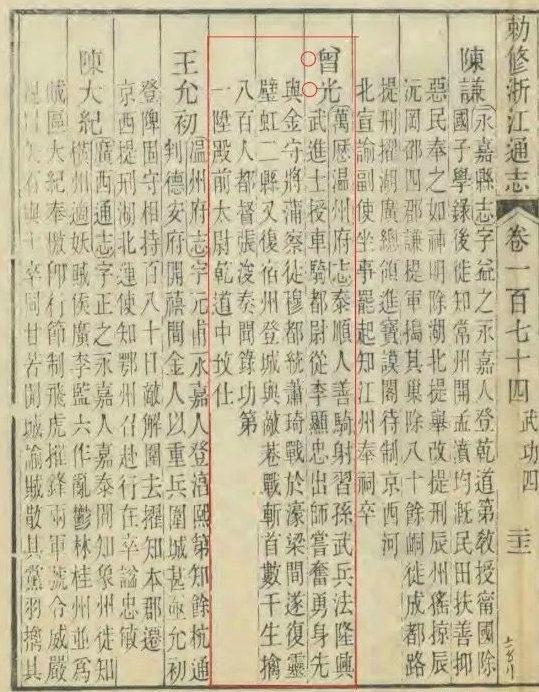 勅修浙江通志
卷一百七十四
武功四
陳謙永嘉縣志字益之永嘉人登乾道第教授甯國除
國子學錄後徙知常州開孟瀆均溉民田扶善抑
惡民奉之如神明除湖北提舉改提刑辰州徭掠辰
沅岡邵四郡謙提軍搗其巢除八十餘峒徙成都路
提刑擢湖廣總領進寶謨閣待制京西河
北宣諭副使坐事罷起知江州奉祠卒
曾光萬厯温州府志泰順人善騎射習孫武兵法隆興
武進士授車騎都尉從李顯忠出師嘗奮勇身先
與金守將蒲察徒穆都統蕭琦戰於濠梁間遂復靈
壁虹二縣又復宿州登城與敵巷戰斬首數千生擒
八百人都督張浚奏聞錄功第
一陞殿前太尉乾道中致仕
王允初温州府志字元甫永嘉人登淳熙第知餘杭通
判德安府開禧間金人以重兵圍城甚亟允初
登陴固守相持百八十日敵解圍去擢知本郡遷
京西提刑湖北運使知鄂州召赴行在卒諡忠敏
陳大紀廣西通志字正之永嘉人嘉泰間知象州徙知
橫州適妖賊侯廣李監六作亂鬱林桂州並為
賊區大紀奉檄卽行節制飛虎摧鋒兩軍號令威嚴
矢石與士卒同甘苦開城諭賊散其黨羽擒其